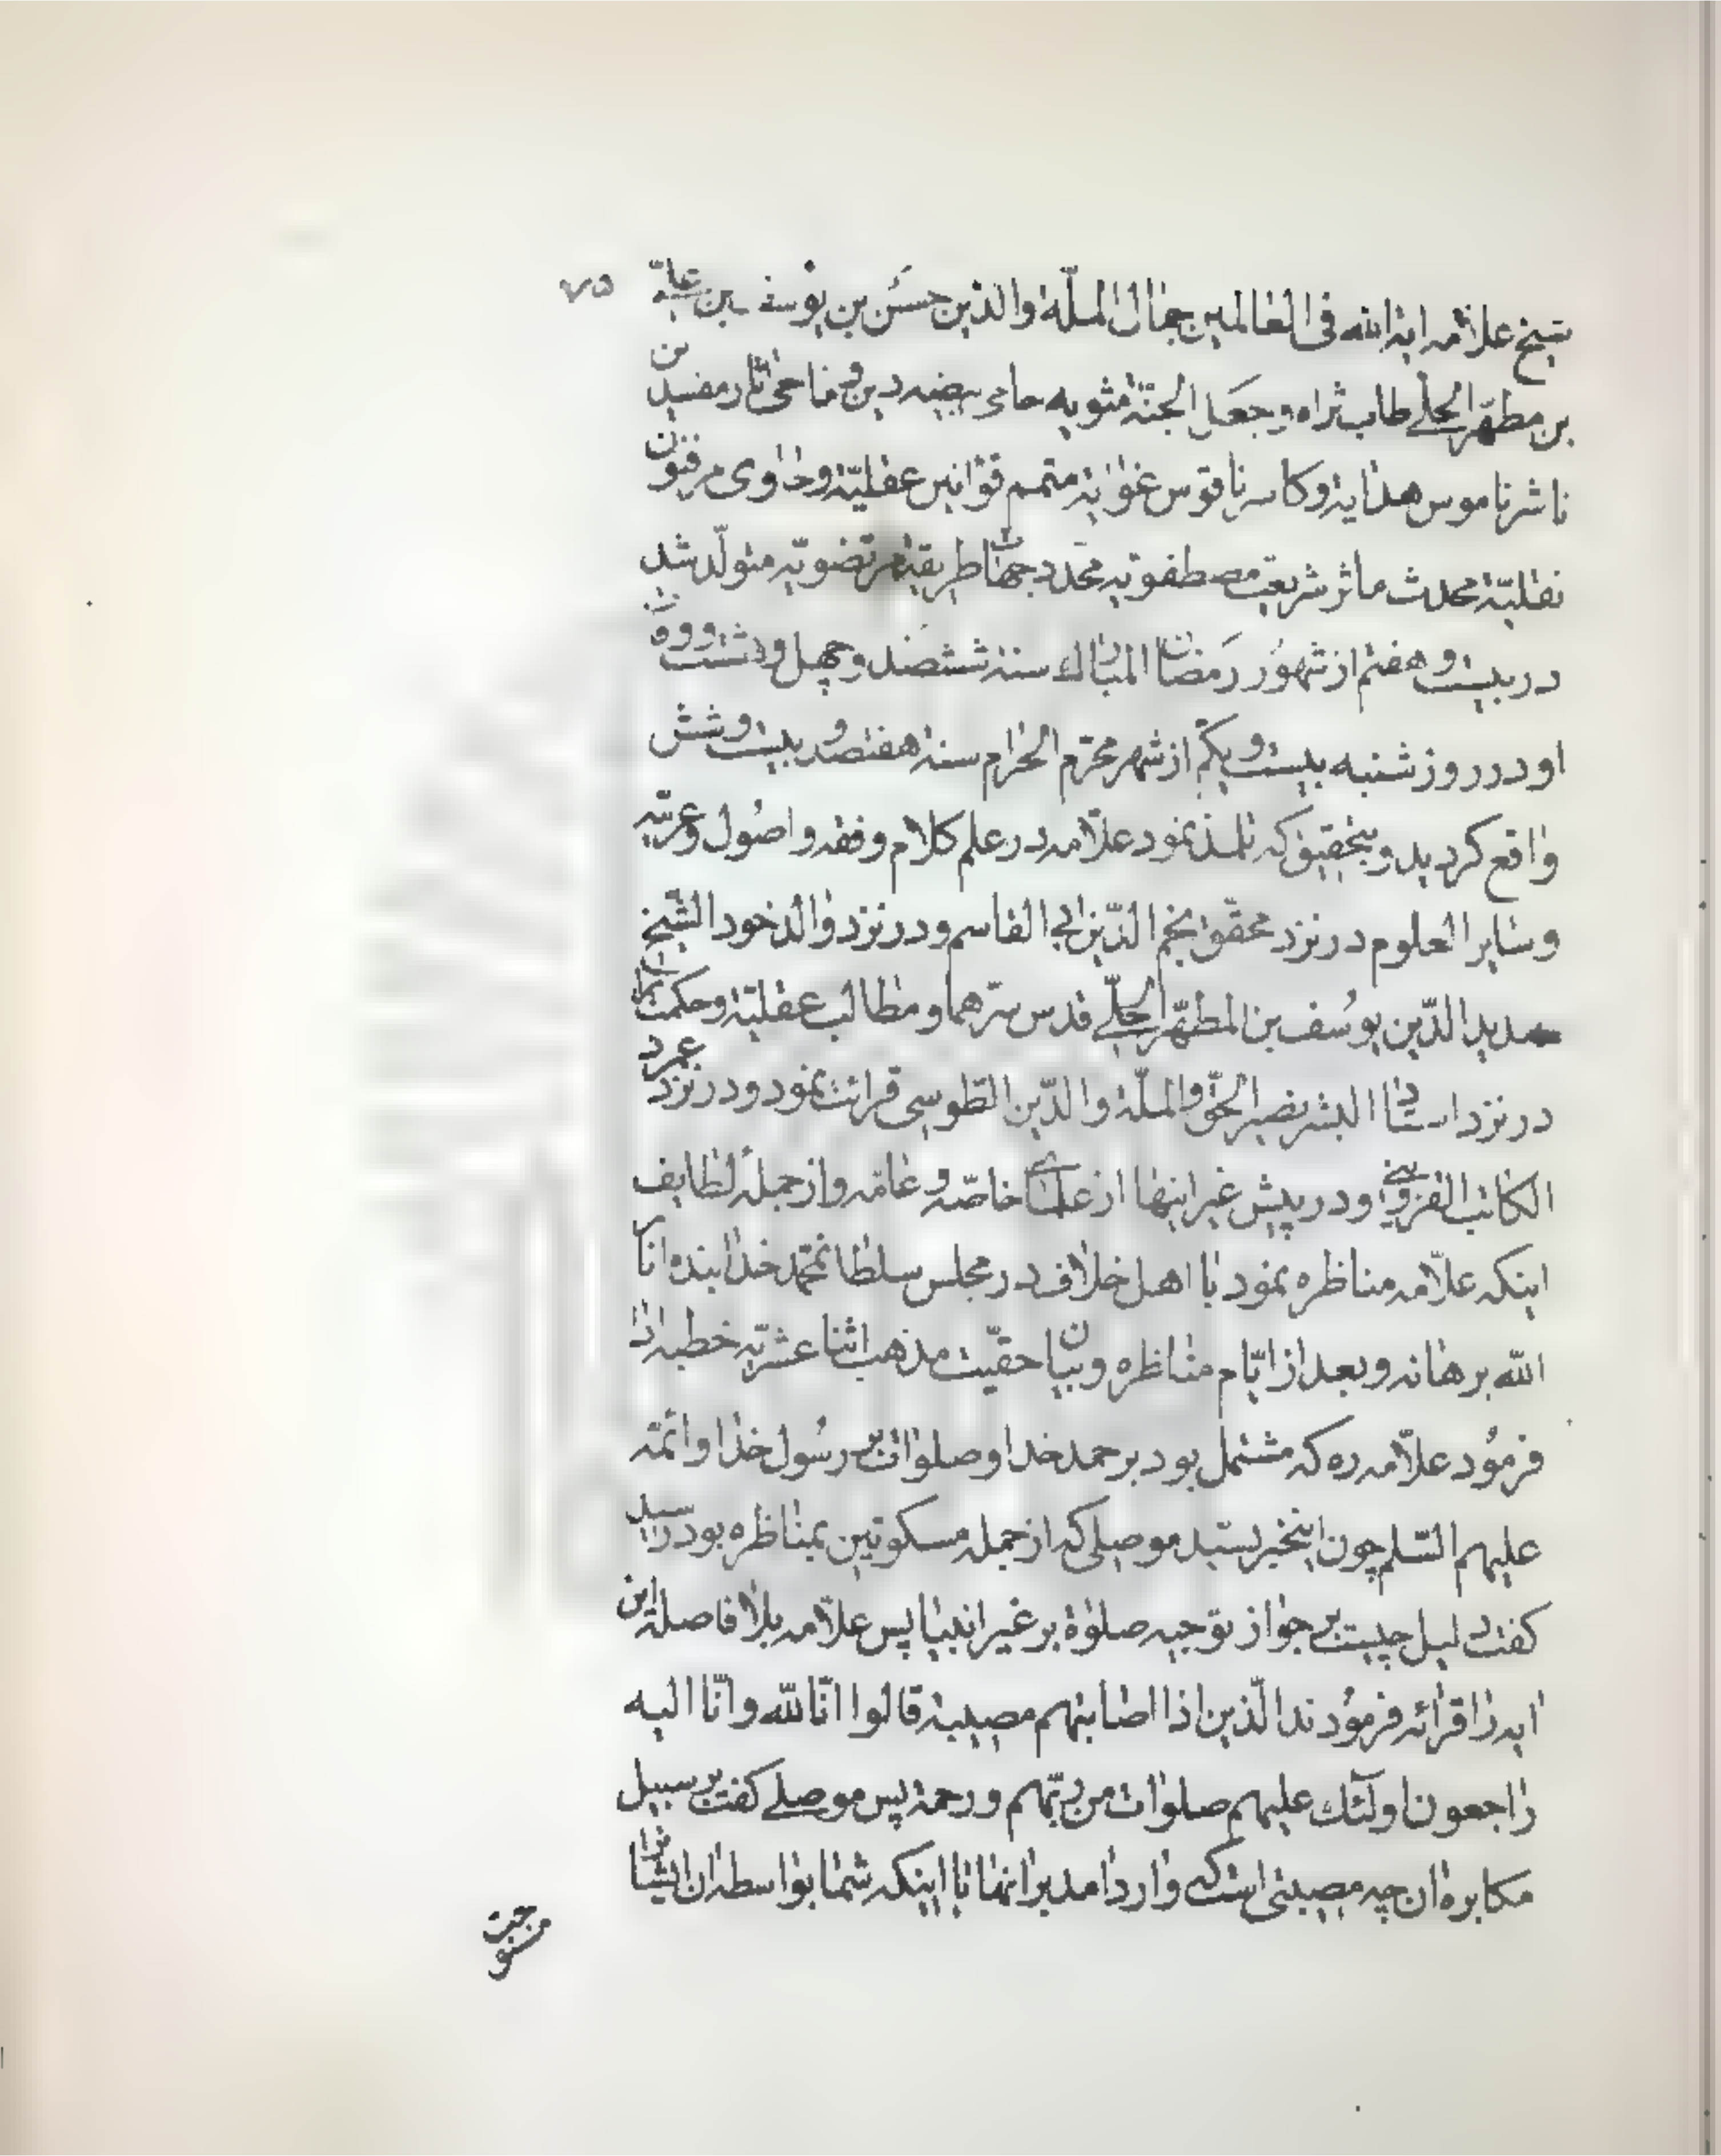 ۷۵
شیخ علامه ایة الله فی العالمین جمال الملّة والدین حسن بن یوسف بن علیّ
بن مطهّر الحلّے طاب ثراه و جعل الجنّة مثویه حامی بیضه دین و ماحی اثار مفسدین
ناشر ناموس هدایة و کاسر ناقوس غوایة متمم قوانین عقلیّة و حاوی مرفنون
نقلیّة محدث ماثر شریعت مصطفویه محدد جهات طریقة مرتضویّه متولّد شد
در بیست و هفتم از شهور رمضان المبارک سنة ششصد و چهل و هشت و وفات
او در روز شنبه بیست و یکم از شهر محرّم الحرام سنة هفتصد و بیست و شش
واقع کردید و بتحقیق که تلمذ نمود علاّمه در علم کلام و فقه و اصُول و عربیّه
و سایر العلوم در نزد محقّق نجم الدّین ابی القاسم و در نزد والد خود الشیخ
سدید الدّین یوسف بن المطهّر الحلّے قدس سرّهما و مطالب عقلیّة و حکمت را
در نزد استاد البشر نصیر الحقّ و الملّة و الدّین الطوسی قرائت نمود و در نزد عمر
الکاتب القزوینی و در پیش غیر اینها از علمای خاصّه و عامّه و از جملهٔ لطایف
اینکه علاّمه مناظره نمود با اهل خلاف در مجلس سلطان محمّد خدابنده انار
الله برهانه و بعد از ایّام مناظره و بیان حقیّت مذهب اثنا عشریّه خطبه ادا
فرمُود علاّمه ره که مشتمل بود بر حمد خدا و صلوات بر رسُول خدا و ائمّه
علیهم السّلم چون اینخبر بسیّد موصلی که از جمله مسکوتین بمناظره بود رسید
کفت دلیل چیست بر جواز توجیه صلوٰة بر غیر انبیا پس علاّمه بلا فاصلة این
ایه را قرائه فرمُودند الّذین اذا اصابتهم مصیبة قالوا انّا لله و انّا الیه
راجعون اولٓئک علیهم صلوات من ربّهم و رحمة پس موصلے کفت بر سبیل
مکابره ان چه مصیبتی است که وارد امد بر انها با اینکه شما بواسطه ان ایشان را